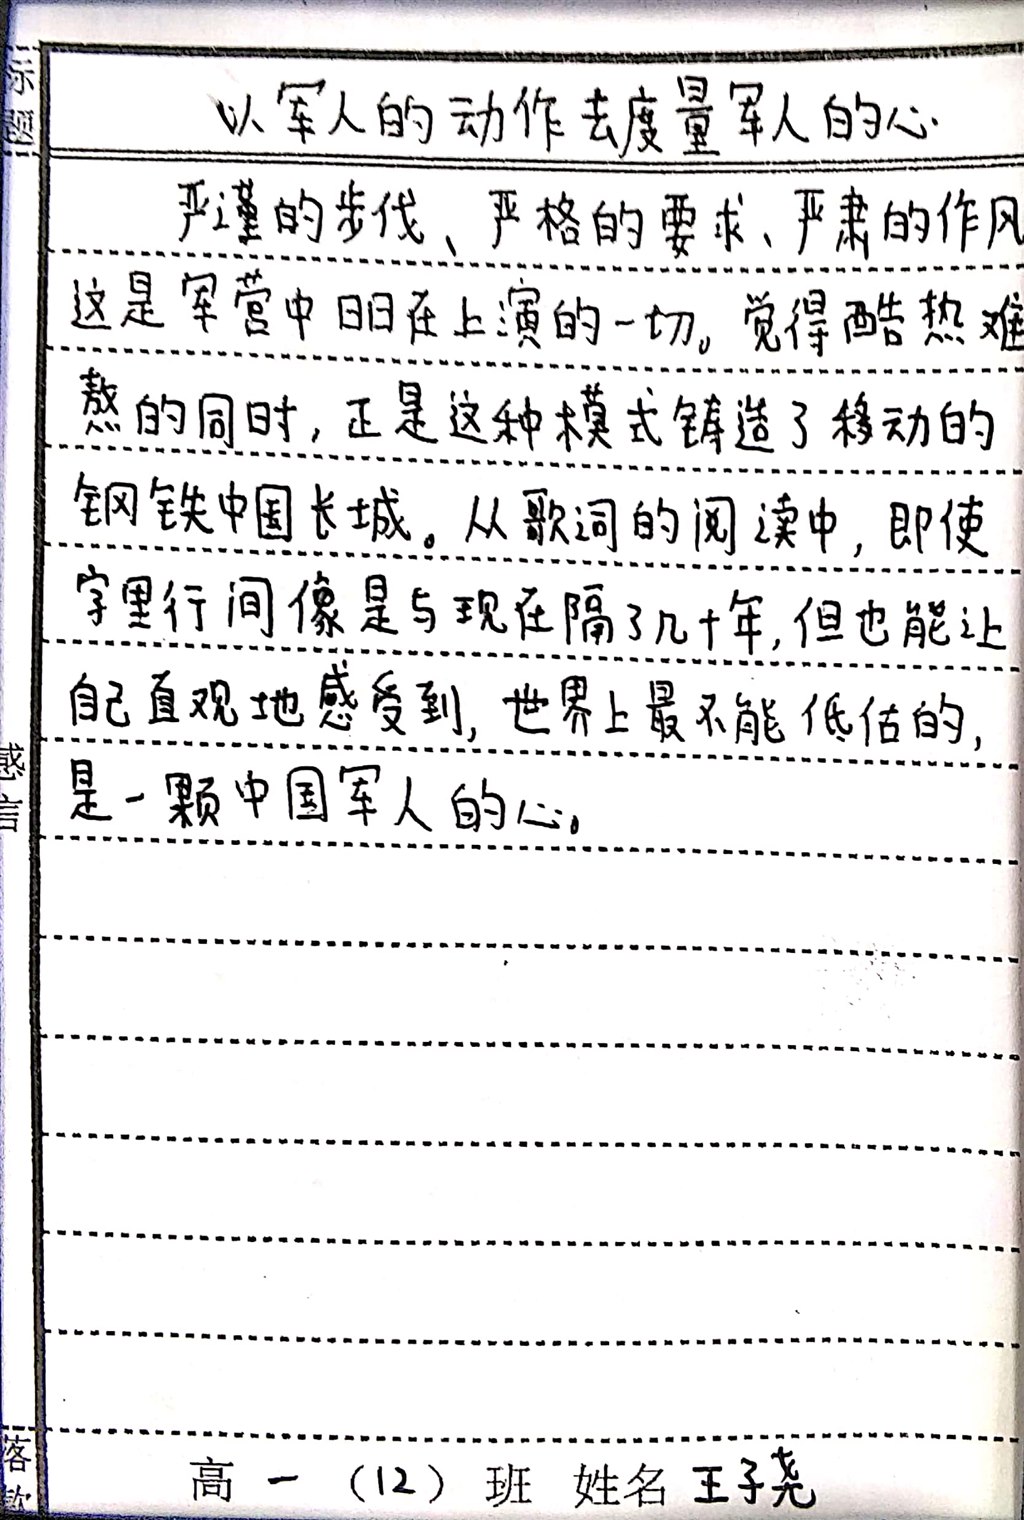 标题
以军人的动作去度量军人的心
严谨的步伐、严格的要求、严肃的作风
这是军营中日日在上演的一切。觉得酷热难
熬的同时,正是这种模式铸造了移动的
钢铁中国长城。从歌词的阅读中,即使
字里行间像是与现在隔了几十年,但也能让
自己直观地感受到,世界上最不能低估的,
是一颗中国军人的心。
感言
落款
高一(12)班 姓名 王子尧